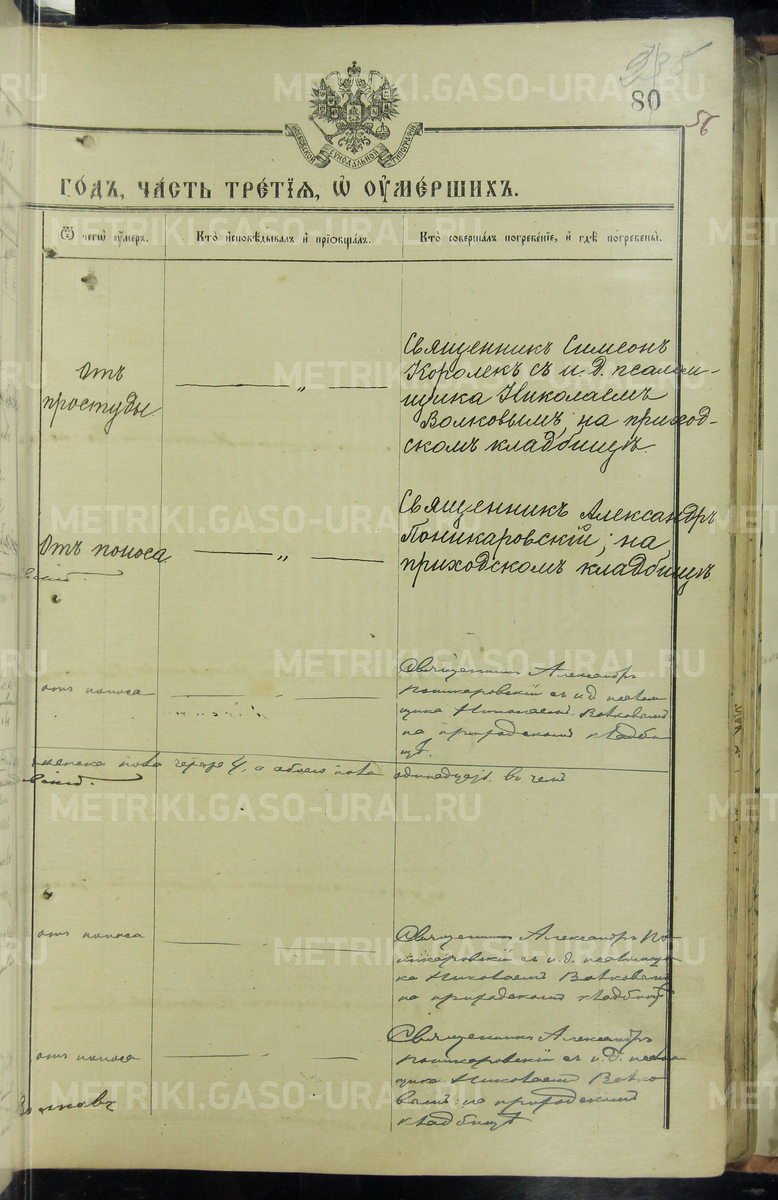 80
56
МОСКОВСКОЙ СѴНОДАЛЬНОЙ ТИПОГРАФІИ
ГОДЪ, ЧАСТЬ ТРЕТІЯ, Ѡ ОУМЕРШИХЪ.
Ѿ чегѡ оумеръ.
Кто исповѣдывалъ и пріобщалъ.
Кто совершалъ погребеніе, и гдѣ погребены.
Отъ
простуды
Священникъ Симеонъ
Королекъ съ и. д. псалом-
щика Николаемъ
Волковымъ, на приход-
скомъ кладбищѣ.
Отъ поноса
Священникъ Александръ
Поникаровскій; на
приходскомъ кладбищѣ
отъ поноса
Священникъ Александръ
Поникаровскій съ и.д. псалом
щика Николаемъ Волковымъ
на приходскомъ кладби
щѣ.
пола четыре 4, а обоего пола одинадцать
отъ поноса
Священникъ Александръ По-
никаровскій съ и.д. псаломщи
ка Николаемъ Волковымъ
на приходскомъ кладбищѣ
отъ поноса
Священникъ Александръ
Поникаровскій съ и.д. псалом
щика Николаемъ Волко
вымъ на приходскомъ
кладбищѣ
METRIKI.GASO-URAL.RU